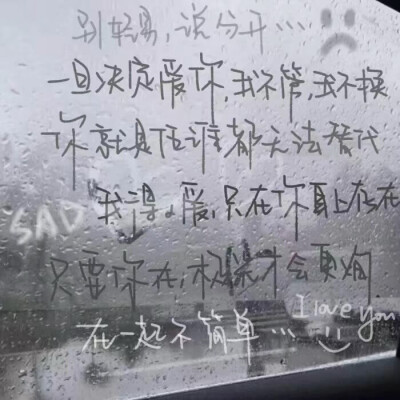 别轻易，说分开…
一旦决定爱你，我不管，我不换
你就是任谁都无法替代
SAD 我得爱，只在你身上存在
只要你在，极光才会绚烂
I love you
在一起不简单…